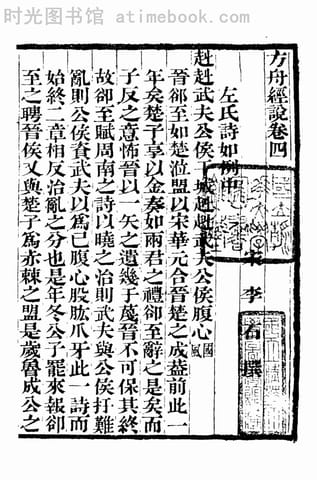 时光图书馆 - atimebook.com
方舟經說卷四
宋 李石 撰
左氏詩如例中
赳赳武夫公侯干城赳赳武夫公侯腹心國風
晉郤至如楚涖盟以宋華元合晉楚之成葢前此一
年矣楚子享以金奏如兩君之禮郤至辭之是矣而
子反之意怖晉以一矢之遺幾于蔑晉不可保其終
故郤至賦周南之詩以曉之治則武夫與公侯扞難
亂則公侯資武夫以爲己腹心股肱爪牙此一詩而
始終二章相反治亂之分也是年冬公子罷來報郤
至之聘晉侯又與楚子爲赤棘之盟是歲魯成公之